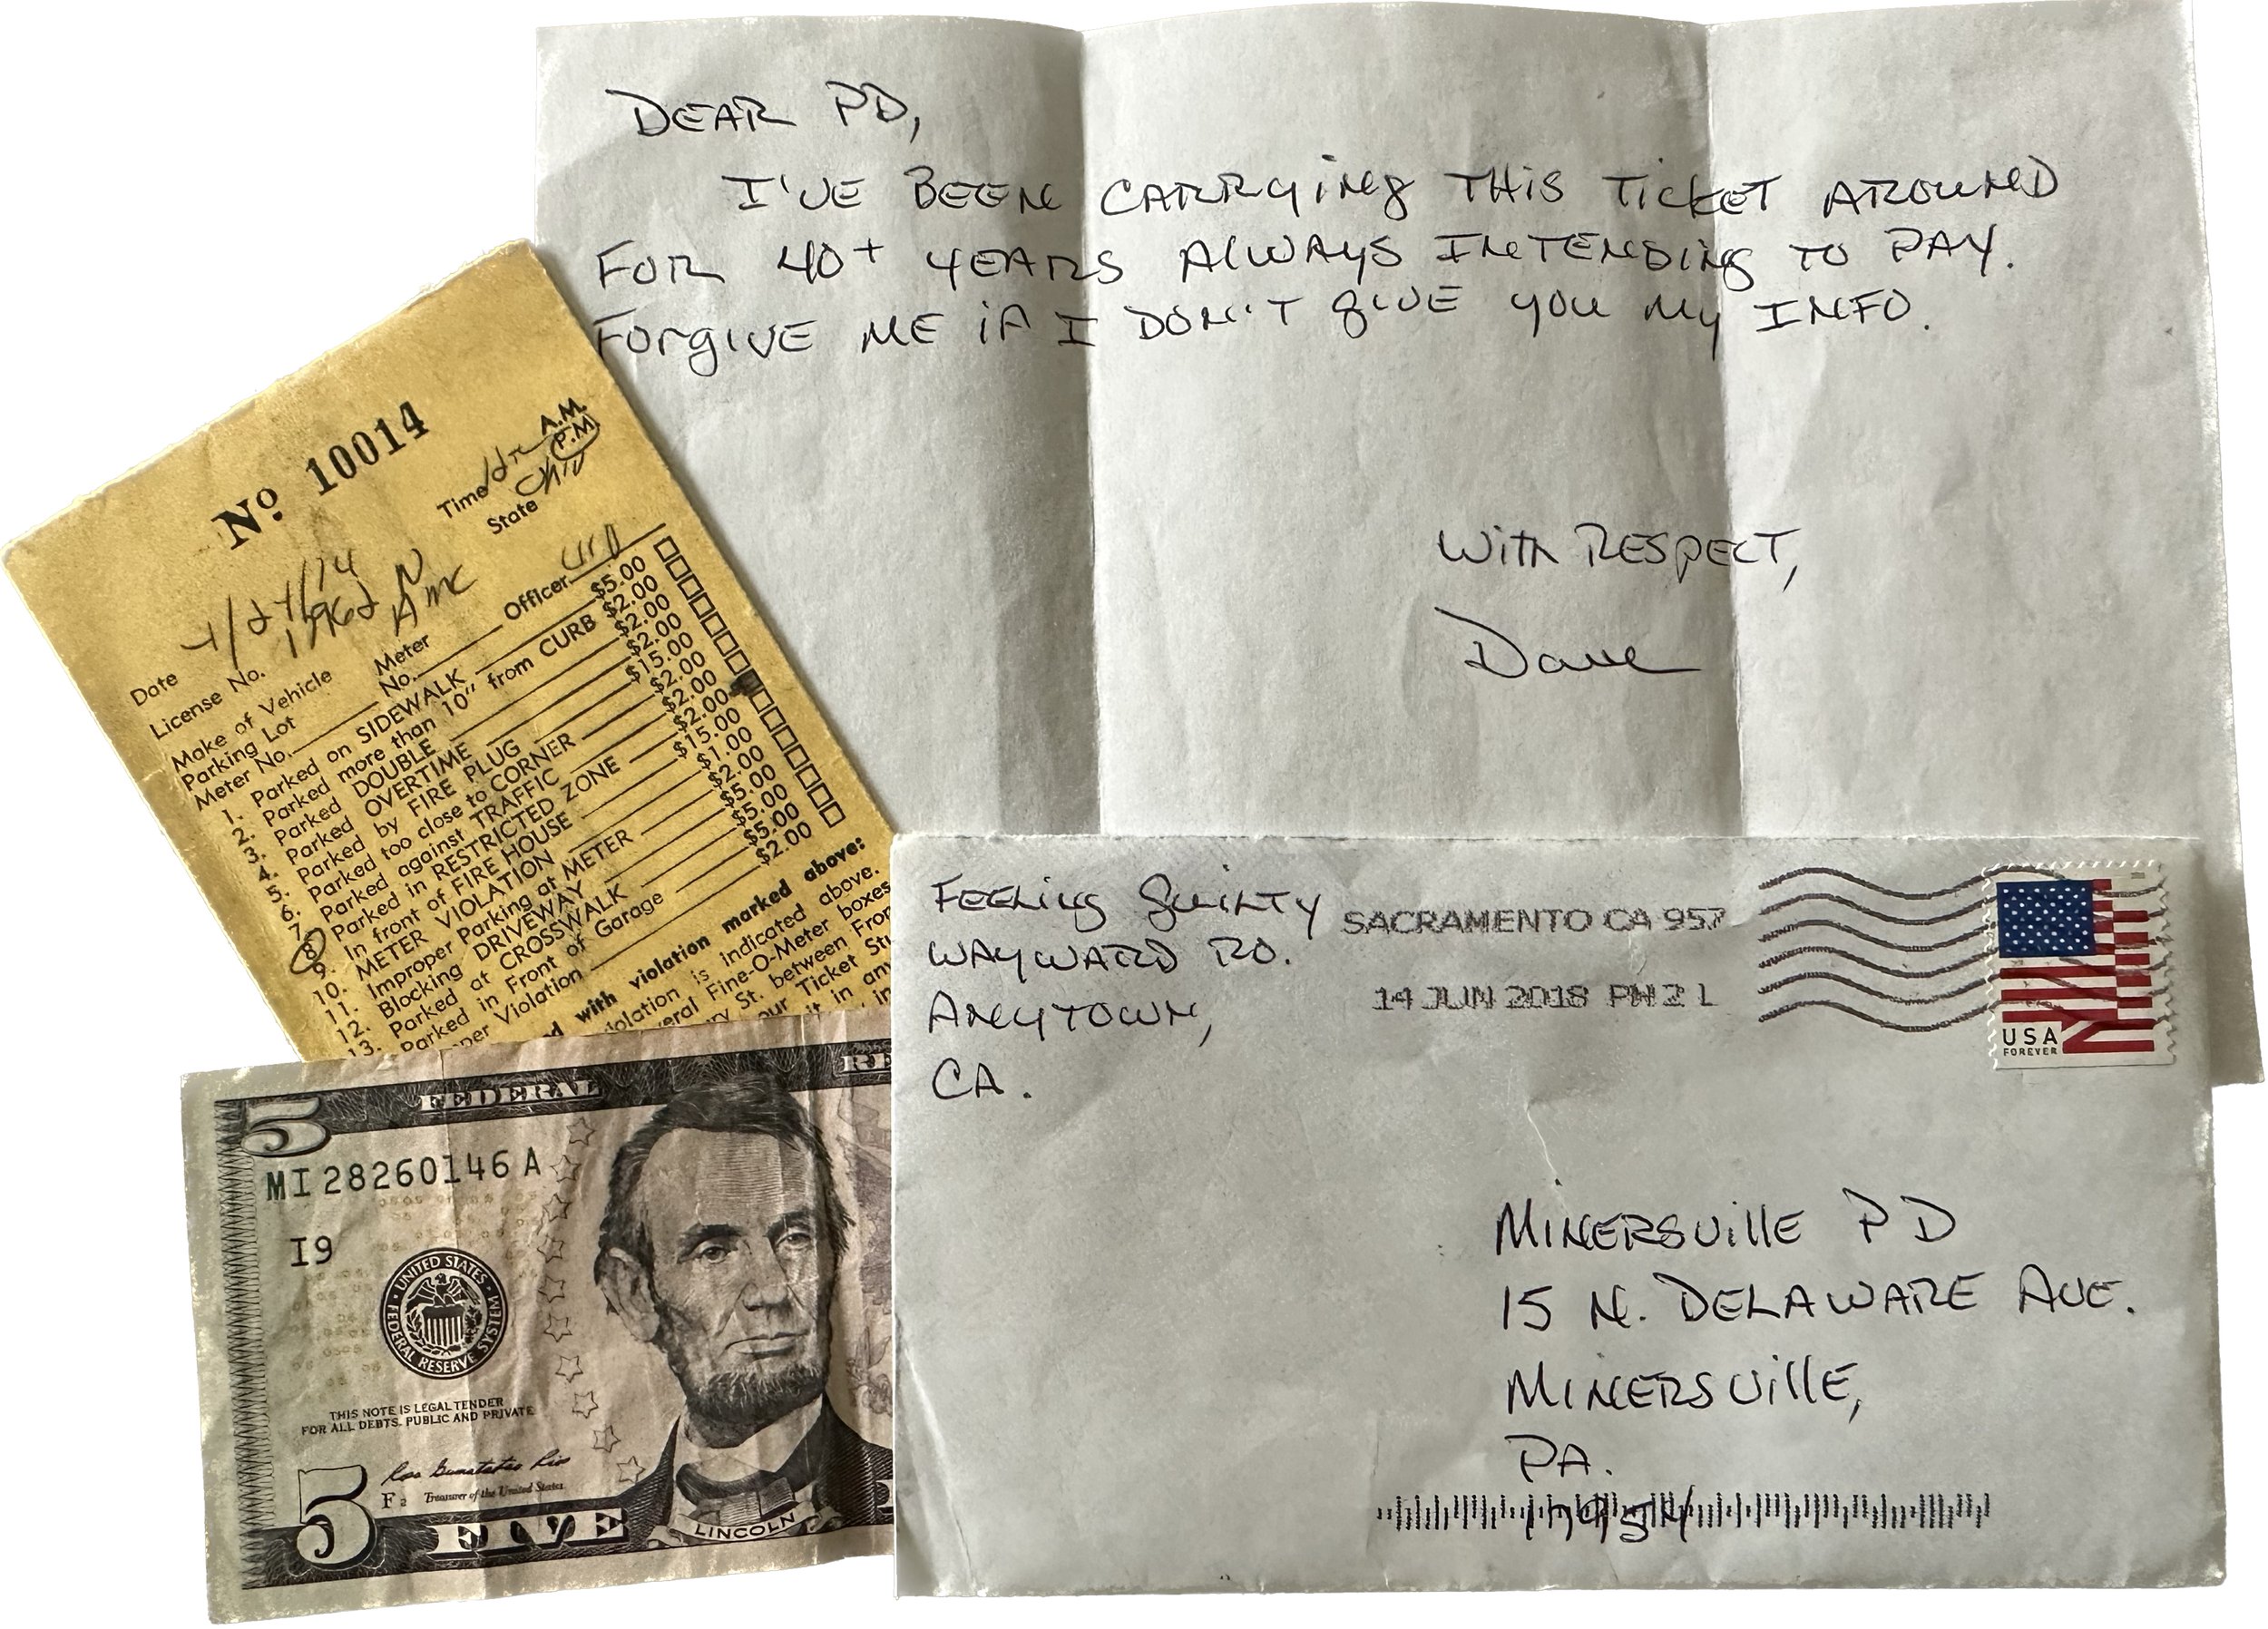 DEAR PD,
I'VE BEEN CARRYING THIS TICKET AROUND
FOR 40+ YEARS ALWAYS INTENDING TO PAY.
FORGIVE ME IF I DON'T GIVE YOU MY INFO.
WITH RESPECT,
Dave
No 10014
Time A.M.
P.M
State Ohio
Date
License No.
Make of Vehicle AMC
Parking Lot
Meter No. Meter No. Officer
1. Parked on SIDEWALK $5.00
2. Parked more than 10" from CURB $2.00
3. Parked DOUBLE $2.00
4. Parked OVERTIME $2.00
5. Parked by FIRE PLUG $15.00
6. Parked too close to CORNER $2.00
7. Parked against TRAFFIC $2.00
8. Parked in RESTRICTED ZONE $2.00
9. In front of FIRE HOUSE $15.00
10. METER VIOLATION $1.00
11. Improper Parking at METER $2.00
12. Blocking DRIVEWAY $5.00
13. Parked at CROSSWALK $5.00
Parked in Front of Garage $5.00
per Violation $2.00
with violation marked above:
is indicated above.
Fine-O-Meter boxes
St. between
Ticket
it in
in
FEDERAL
5
MI 28260146 A
I9
UNITED STATES
FEDERAL RESERVE SYSTEM
THIS NOTE IS LEGAL TENDER
FOR ALL DEBTS, PUBLIC AND PRIVATE
F 2 Treasurer of the United States
5 FIVE LINCOLN
FEELING GUILTY
WAYWARD RD.
ANYTOWN,
CA.
SACRAMENTO CA 957
14 JUN 2018 PM 2 L
USA
FOREVER
MINERSVILLE PD
15 N. DELAWARE AVE.
MINERSVILLE,
PA.
17954